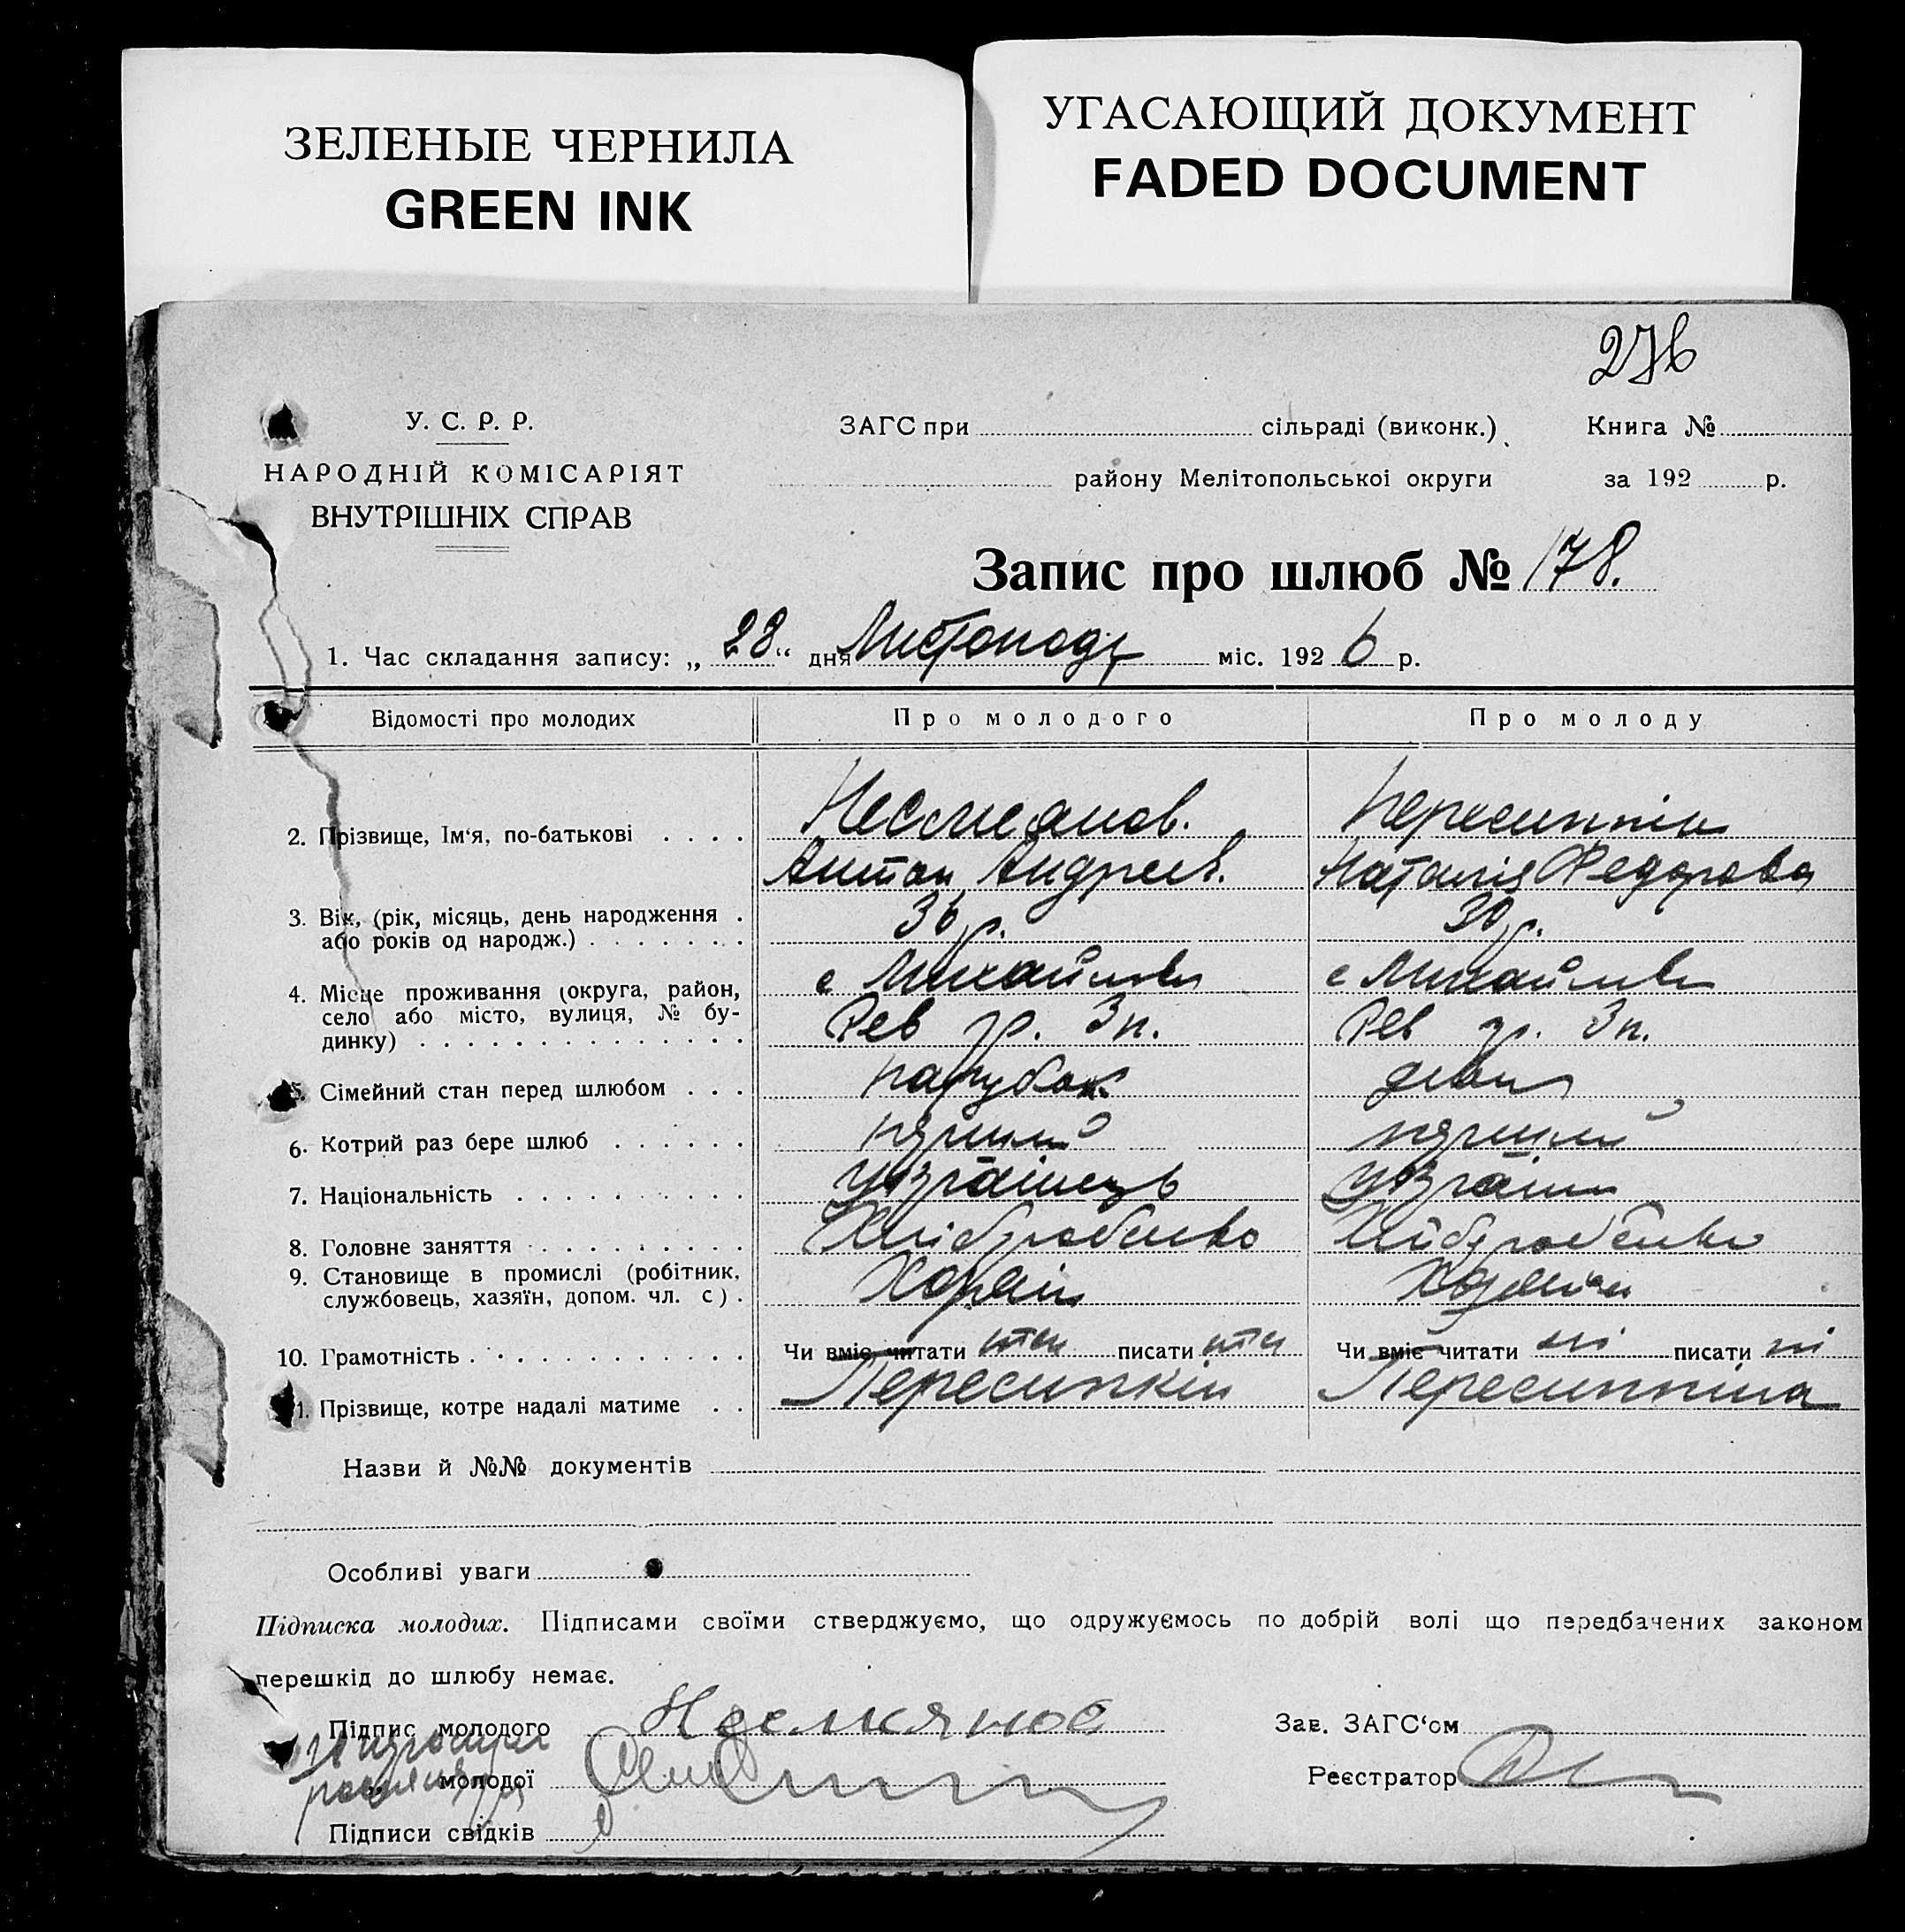 ЗЕЛЕНЫЕ ЧЕРНИЛА
GREEN INK
УГАСАЮЩИЙ ДОКУМЕНТ
FADED DOCUMENT
276
У. С. Р. Р.
НАРОДНІЙ КОМІСАРІЯТ
ВНУТРІШНІХ СПРАВ
ЗАГС при сільраді (виконк.) Книга №
району Мелітопольської округи за 192 р.
Запис про шлюб № 178.
1. Час складання запису: „ 28 “ дня Листопаду міс. 192 6 р.
Відомості про молодих Про молодого Про молоду
2. Прізвище, Ім‘я, по-батькові Несмеянов. Пересипкін
Антон Андреев. Наталія Федорова
3. Вік, (рік, місяць, день народження 36 р. 30 р.
або років од народж.)
4. Місце проживання (округа, район, с Михайлівка с Михайлівка
село або місто, вулиця, № бу- Рев гр. 3 п. Рев гр. 3 п.
динку)
5. Сімейний стан перед шлюбом парубок
6. Котрий раз бере шлюб перший перший
7. Національність українець
8. Головне заняття Хліборобство Хліборобство
9. Становище в промислі (робітник, Хазяїн
службовець, хазяїн, допом. чл. с)
10. Грамотність Чи вміє читати писати Чи вміє читати ні писати ні
11. Прізвище, котре надалі матиме Пересипкін Пересипкіна
Назви й №№ документів
Особливі уваги
Підписка молодих. Підписами своїми стверджуємо, що одружуємось по добрій волі що передбачених законом
перешкід до шлюбу немає.
Підпис молодого Несмкянов Зав. ЗАГС‘ом
„ молодої Реєстратор
Підписи свідків